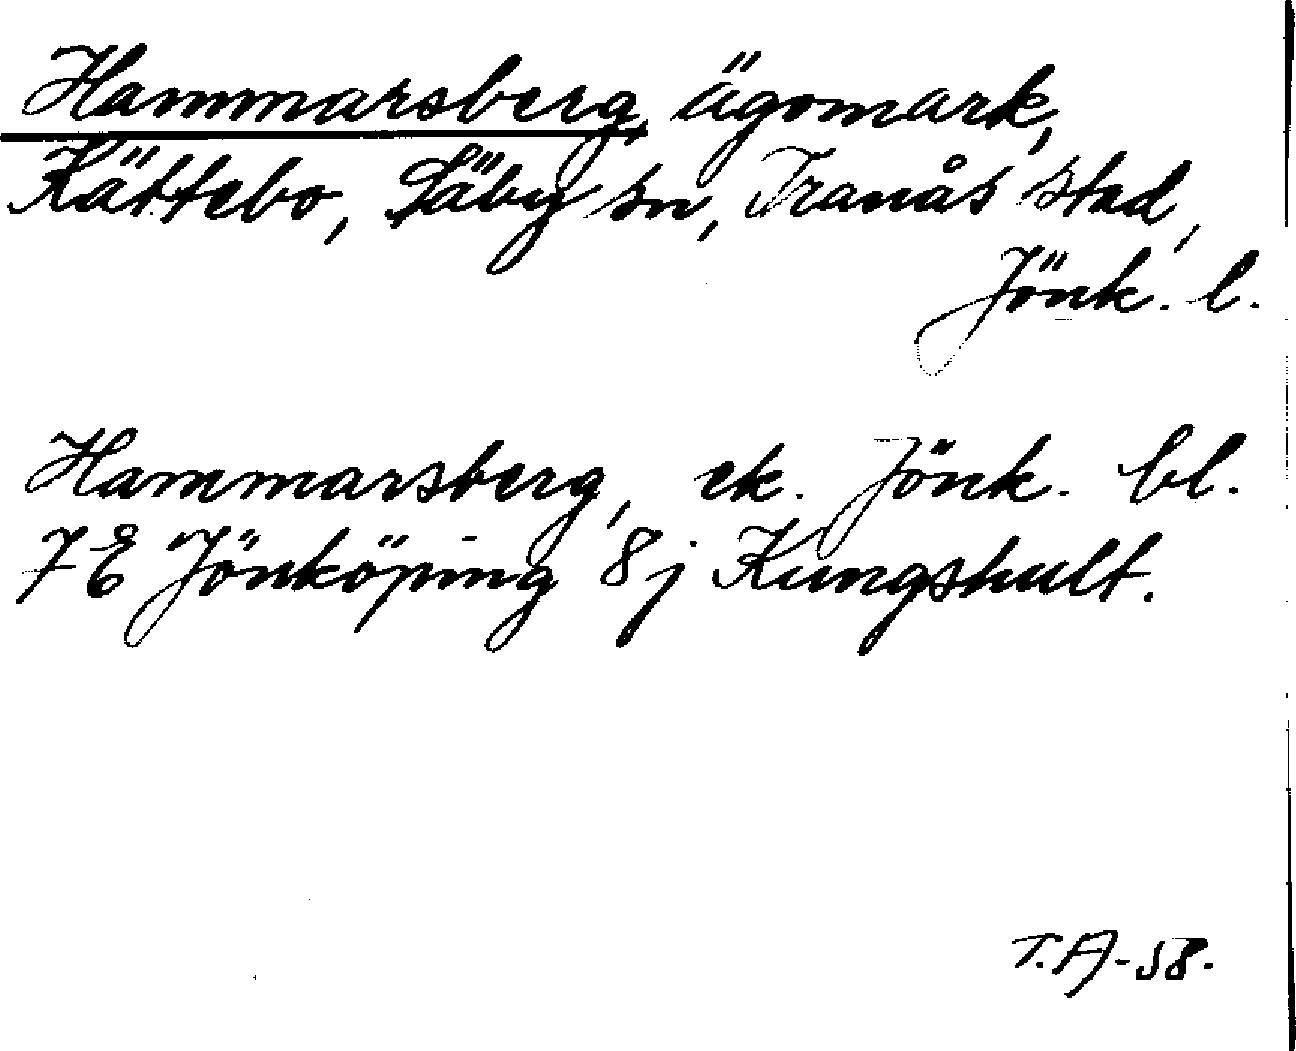 Hammarsberg, ägomark,
Kättebo, Säby sn, Tranås stad,
Jönk. l.
Hammarsberg, ek. Jönk. bl.
7 E Jönköping 8 j Kungshult.
T.A-58.